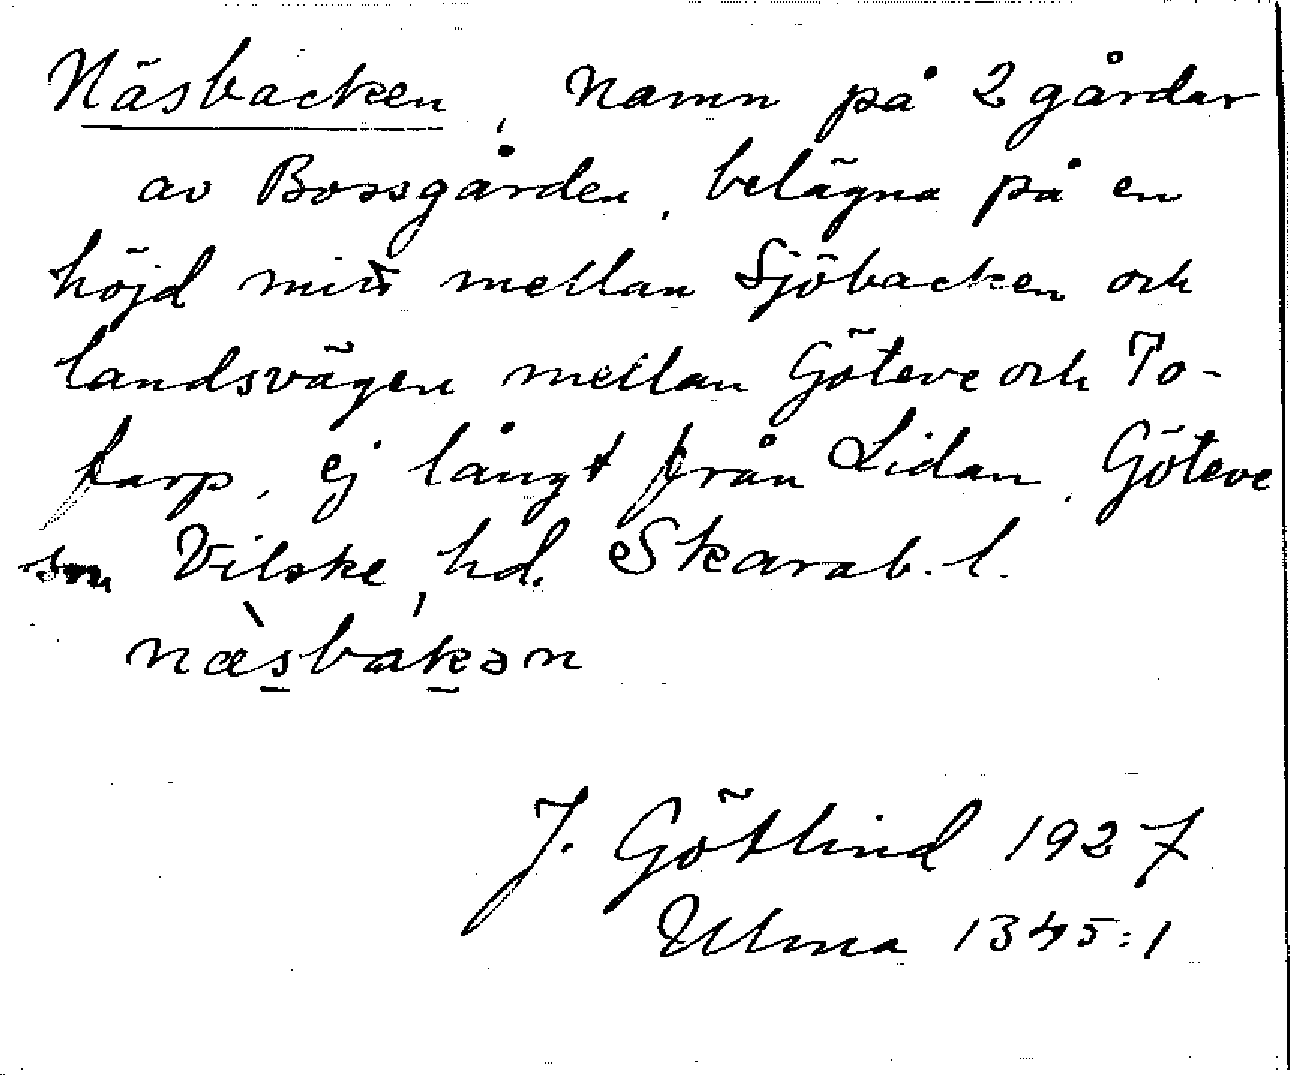 Näsbacken, Namn på 2 gårdar
av Bossgården, belägna på en
höjd mitt mellan Sjöbacken och
landsvägen mellan Göteve och To-
farp, ej långt från Lidan. Göteve
sn Vilske hd. Skarab. l.
næ̀sbákən
J. Götlind 1927
Ulma 1345:1